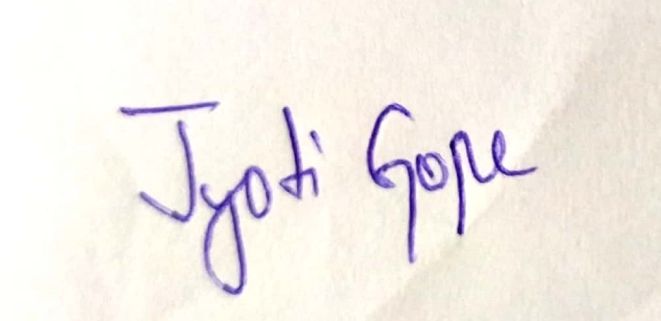 Jyoti Gope